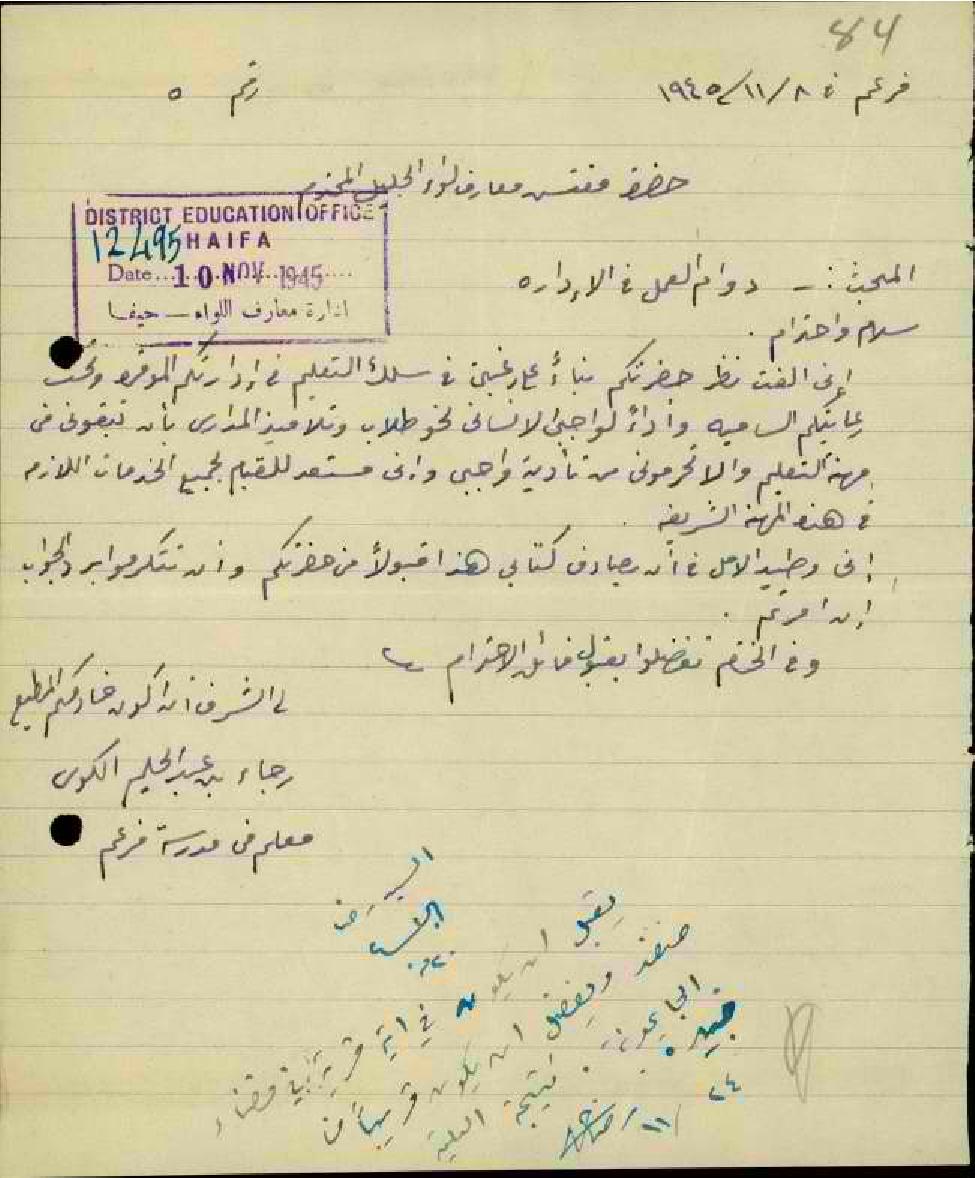 84
فرعم في ٨/١١/١٩٤٥
رقم ٥
حضرة مفتش معارف لواء الجليل المحترم
DISTRICT EDUCATION OFFICE
12495 HAIFA
Date 10 NOV 1945
ادارة معارف اللواء — حيفا
المبحث :- دوام العمل في الإداره
سلام واحترام .
إني الفت نظر حضرتكم بناءً على رغبتي في سلك التعليم في إدارتكم الموقره وتحت
رعايتكم الساميه وأداءً لواجبي الانساني نحو طلاب وتلاميذ المدارس بأن تبقوني في
مهنة التعليم والا تحرموني من تأدية واجبي وانى مستعد للقيام بجميع الخدمات اللازمه
في هذه المهنة الشريفه .
إني وطيد الامل في أن يصادف كتابي هذا قبولاً من حضرتكم وأن تتكرموا برد الجواب
إن امرتم .
وفي الختام تفضلوا بقبول فائق الاحترام
لي الشرف أن اكون خادمكم المطيع
رجاء بن عبد الحليم
معلم في مدرسة فرعم
السيد
يقبل ان يكون في اية قرية في قضاء
صفد ويفضل ان يكون قريباً من
الجاعونه .
نتيجة
٢٤
/١١/